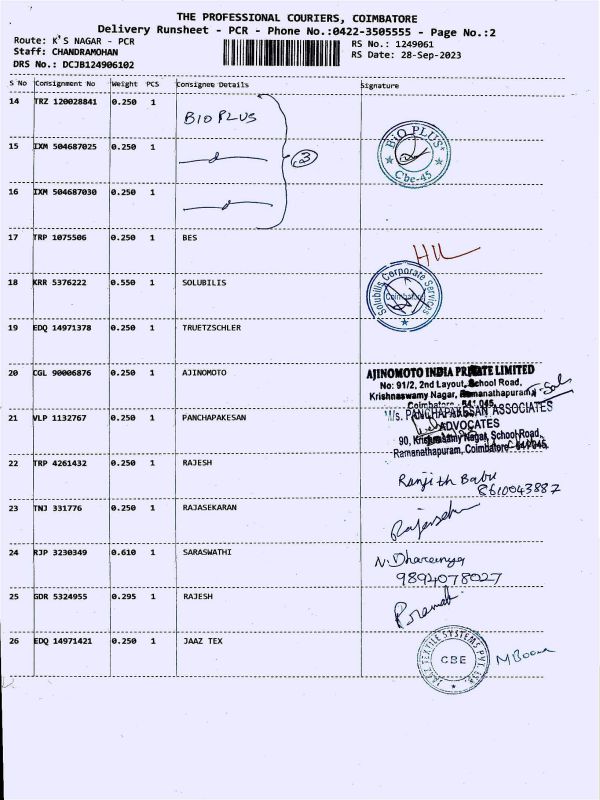 THE PROFESSIONAL COURIERS, COIMBATORE
Delivery Runsheet - PCR - Phone No.:0422-3505555 - Page No.:2
Route: K'S NAGAR - PCR
RS No.: 1249061
Staff: CHANDRAMOHAN
RS Date: 28-Sep-2023
DRS No.: DCJB124906102
S No Consignment No Weight PCS Consignee Details Signature
14 TRZ 120028841 0.250 1 BIO PLUS
15 IXM 504687025 0.250 1
BIO PLUS Cbe-45
3
16 IXM 504687030 0.250 1
17 TRP 1075506 0.250 1 BES
18 KRR 5376222 0.550 1 SOLUBILIS
Solubilis Corporate Services Coimbatore
19 EDQ 14971378 0.250 1 TRUETZSCHLER
20 CGL 90006876 0.250 1 AJINOMOTO
AJINOMOTO INDIA PRIVATE LIMITED
No: 91/2, 2nd Layout, School Road,
Krishnaswamy Nagar, Ramanathapuram,
Coimbatore - 641 045
21 VLP 1132767 0.250 1 PANCHAPAKESAN
M/s. PANCHAPAKESAN ASSOCIATES
ADVOCATES
90, Krishnasamy Nagar, School Road,
Ramanathapuram, Coimbatore-641045
22 TRP 4261432 0.250 1 RAJESH
Ranjith Babu
8610043887
23 TNJ 331776 0.250 1 RAJASEKARAN
24 RJP 3230349 0.610 1 SARASWATHI
N. Dharanya
9894078027
25 GDR 5324955 0.295 1 RAJESH
26 EDQ 14971421 0.250 1 JAAZ TEX
JAAZ TEXTILE SYSTEMS PVT. LTD. CBE